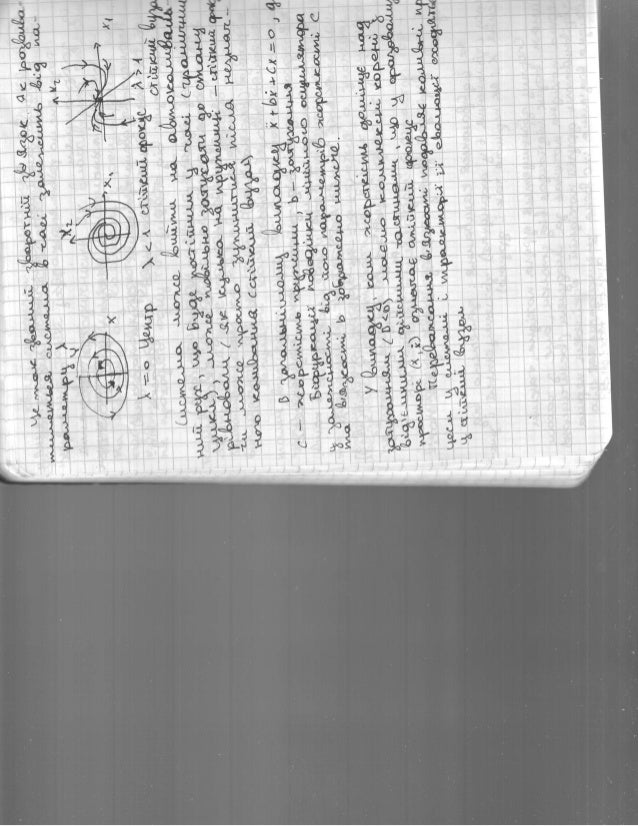 Це так званий зворотній зв'язок. Як розвива-
тиметься система в часі залежить від па-
раметру λ
x x₂ x₁ x₂ x₁
λ=0 Центр λ<1 стійкий фокус λ>1 стійкий вузо
Система може вийти на автоколиваль
ний рух, що буде постійним у часі (граничний
цикл), може повільно затухати до стану
рівноваги (як кулька на пружині - стійкий фок
чи може просто зупинитися після незнач-
ного коливання (стійкий вузол)
В загальному випадку ẍ+bẋ+cx=0,
c - жорсткість пружини, b - затухання
Біфуркації поведінки лінійного осцилятора
у залежності від його параметрів жорсткості c
та в'язкості b зображено нижче.
У випадку, коли жорсткість домінує над
затуханням (D<0) маємо комплексні корені з
від'ємними дійсними частинами, що у фазовому
просторі (x, ẋ) означає стійкий фокус
Переважання в'язкості подавляє коливні пр
цеси у системі і траєкторії її еволюції сходять
у стійкий вузол